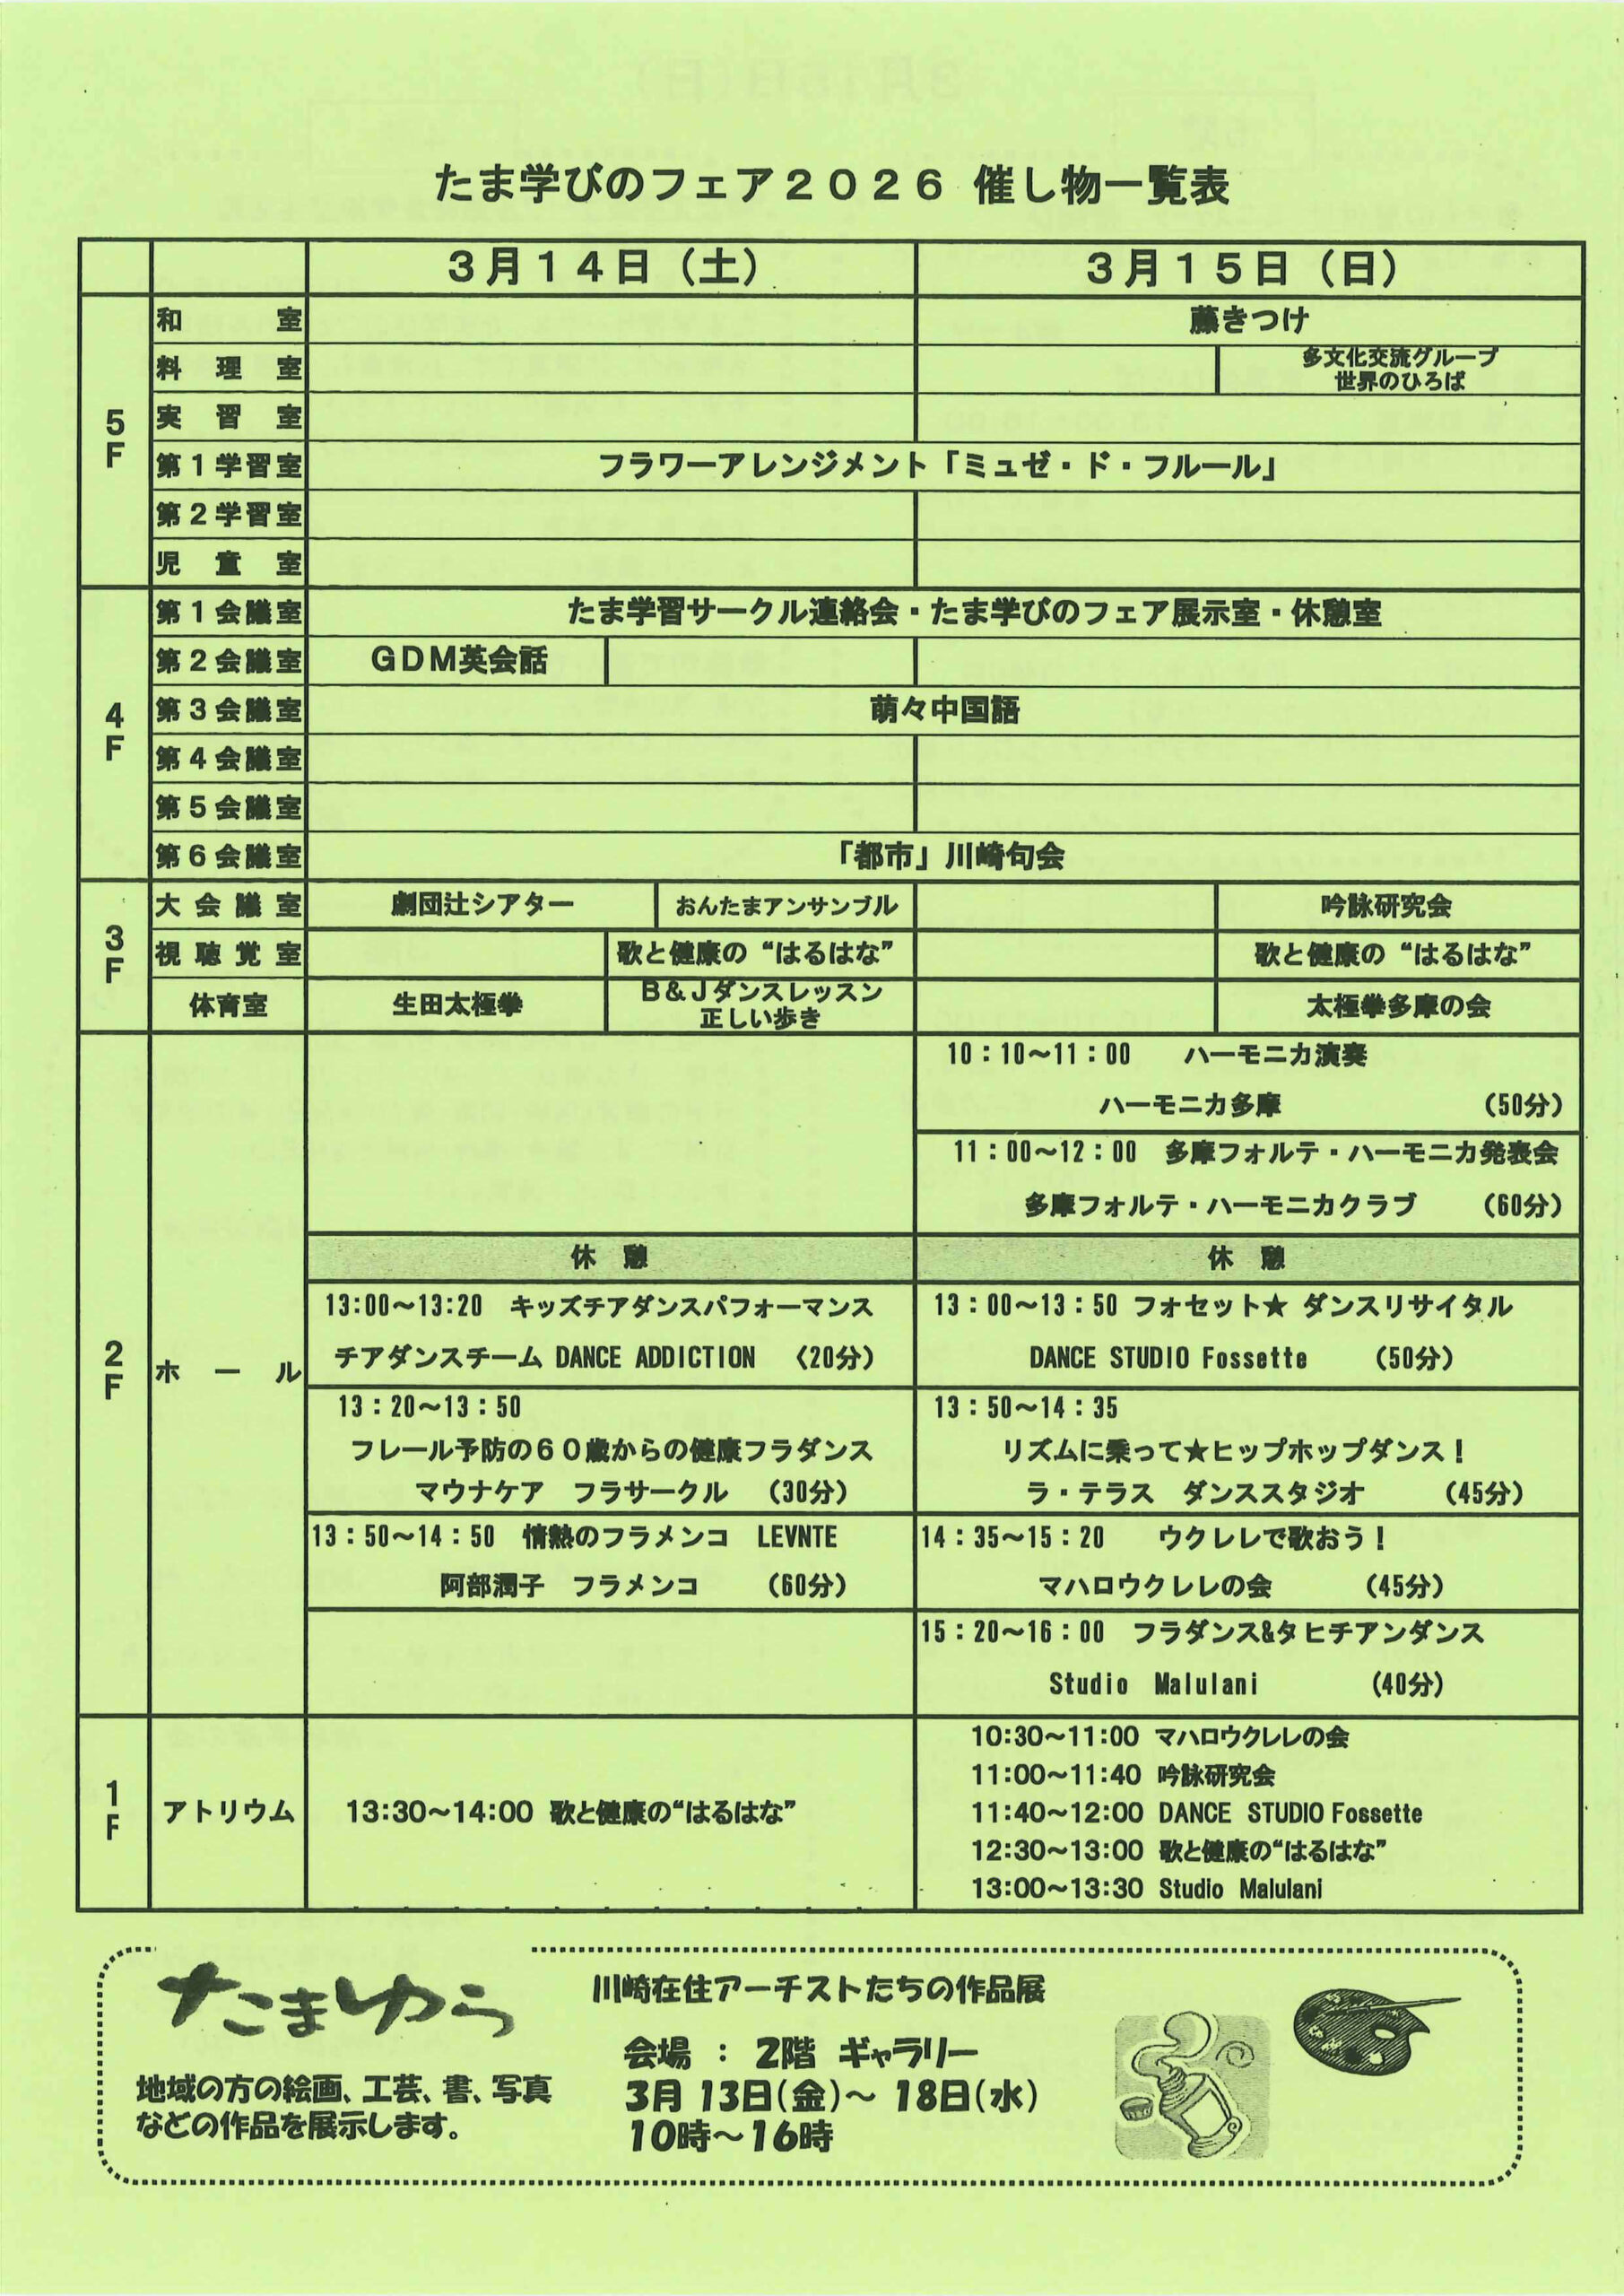 たま学びのフェア２０２６ 催し物一覧表
３月１４日（土） ３月１５日（日）
5F
和室 藤きつけ
料理室 多文化交流グループ
世界のひろば
実習室
第１学習室 フラワーアレンジメント「ミュゼ・ド・フルール」
第２学習室
児童室
4F
第１会議室 たま学習サークル連絡会・たま学びのフェア展示室・休憩室
第２会議室 ＧＤＭ英会話
第３会議室 萌々中国語
第４会議室
第５会議室
第６会議室 「都市」川崎句会
3F
大会議室 劇団辻シアター おんたまアンサンブル 吟詠研究会
視聴覚室 歌と健康の“はるはな” 歌と健康の“はるはな”
体育室 生田太極拳 Ｂ＆Ｊダンスレッスン
正しい歩き 太極拳多摩の会
2F
ホール
10：10～11：00 ハーモニカ演奏
ハーモニカ多摩 （50分）
11：00～12：00 多摩フォルテ・ハーモニカ発表会
多摩フォルテ・ハーモニカクラブ （60分）
休憩 休憩
13:00～13:20 キッズチアダンスパフォーマンス
チアダンスチーム DANCE ADDICTION （20分）
13：00～13：50 フォセット★ ダンスリサイタル
DANCE STUDIO Fossette （50分）
13：20～13：50
フレール予防の６０歳からの健康フラダンス
マウナケア フラサークル （30分）
13：50～14：35
リズムに乗って★ヒップホップダンス！
ラ・テラス ダンススタジオ （45分）
13：50～14：50 情熱のフラメンコ LEVNTE
阿部潤子 フラメンコ （60分）
14：35～15：20 ウクレレで歌おう！
マハロウクレレの会 （45分）
15：20～16：00 フラダンス&タヒチアンダンス
Studio Malulani （40分）
1F
アトリウム
13:30～14:00 歌と健康の“はるはな”
10:30～11:00 マハロウクレレの会
11:00～11:40 吟詠研究会
11:40～12:00 DANCE STUDIO Fossette
12:30～13:00 歌と健康の“はるはな”
13:00～13:30 Studio Malulani
たまゆら
地域の方の絵画、工芸、書、写真
などの作品を展示します。
川崎在住アーチストたちの作品展
会場 ： 2階 ギャラリー
3月 13日(金)～ 18日(水)
10時～16時